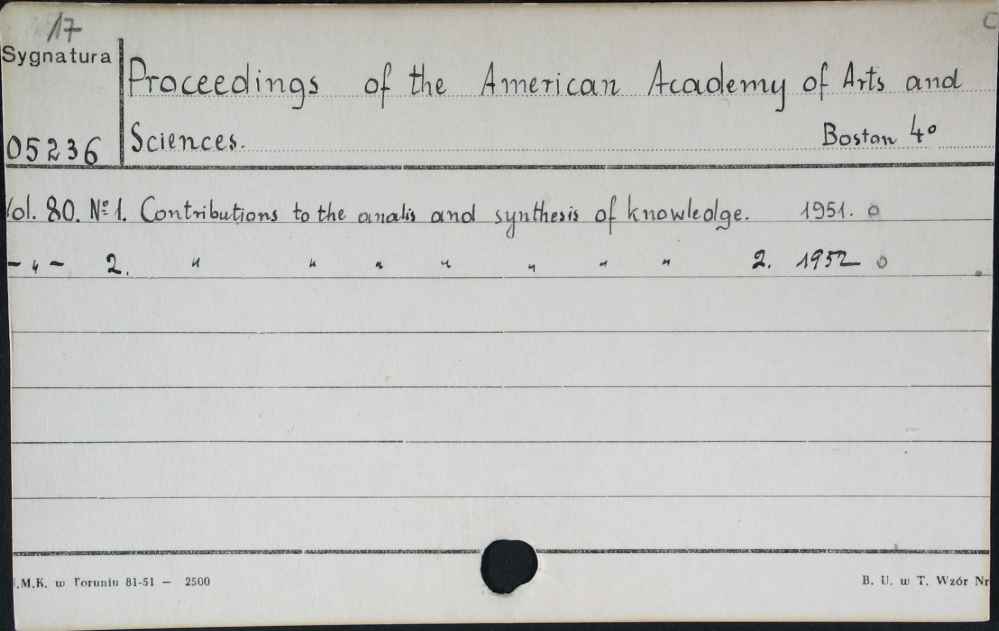 17 C
Sygnatura
Proceedings of the American Academy of Arts and
05236 Sciences. Boston 4°
Vol. 80. № 1. Contributions to the analis and synthesis of knowledge. 1951. o
– „ – 2. „ „ „ „ „ „ „ 2. 1952 o
.M.K. w Toruniu 81-51 — 2500 B. U. w T. Wzór Nr